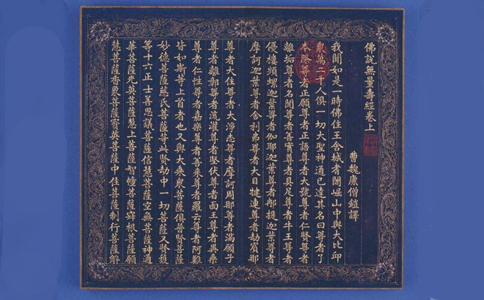 佛說無量壽經卷上
曹魏康僧鎧譯
我聞如是一時佛住王舍城耆闍崛山中與大比丘
眾萬二千人俱一切大聖神通已達其名曰尊者了
本際尊者正願尊者正語尊者大號尊者仁賢尊者
離垢尊者名聞尊者善實尊者具足尊者牛王尊者
優樓頻蠡迦葉尊者伽耶迦葉尊者那提迦葉尊者
摩訶迦葉尊者舍利弗尊者大目揵連尊者劫賓那
尊者大住尊者大淨志尊者摩訶周那尊者滿願子
尊者離障尊者流灌尊者堅伏尊者面王尊者異乘
尊者仁性尊者嘉樂尊者善來尊者羅云尊者阿難
皆如斯等上首者也又與大乘眾菩薩俱普賢菩薩
妙德菩薩慈氏菩薩等此賢劫中一切菩薩又賢護
等十六正士善思議菩薩信慧菩薩空無菩薩神通
華菩薩光英菩薩慧上菩薩智幢菩薩寂根菩薩願
慧菩薩香象菩薩寶英菩薩中住菩薩制行菩薩解